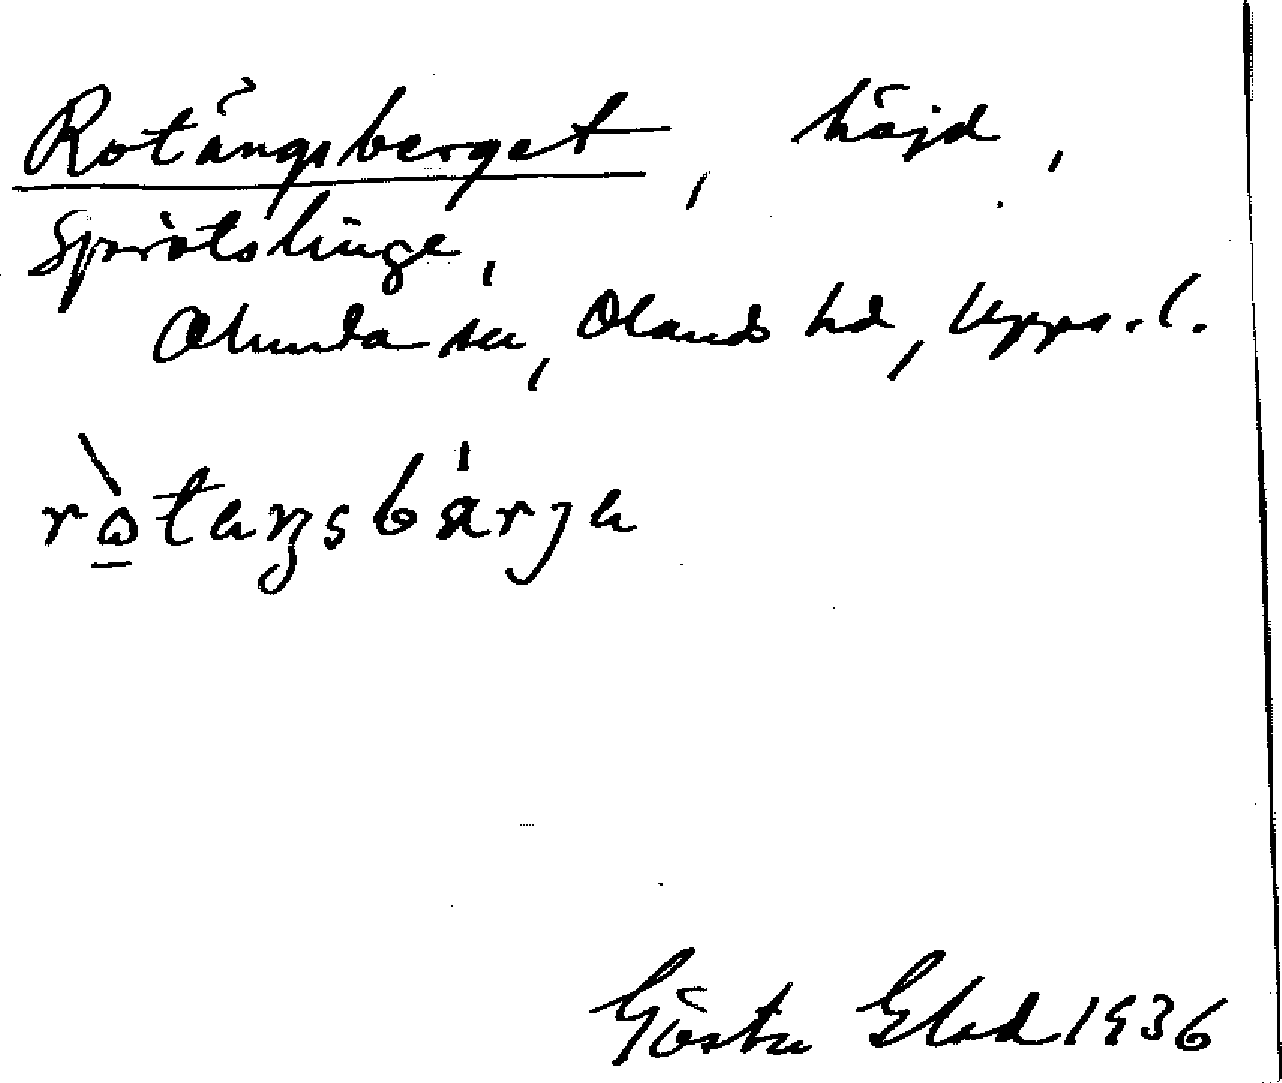 Rotängsberget, höjd,
Sprötslinge,
Alunda sn, Olands hd, Upps. l.
rò̱taŋsbárja
Gösta Elod 1936